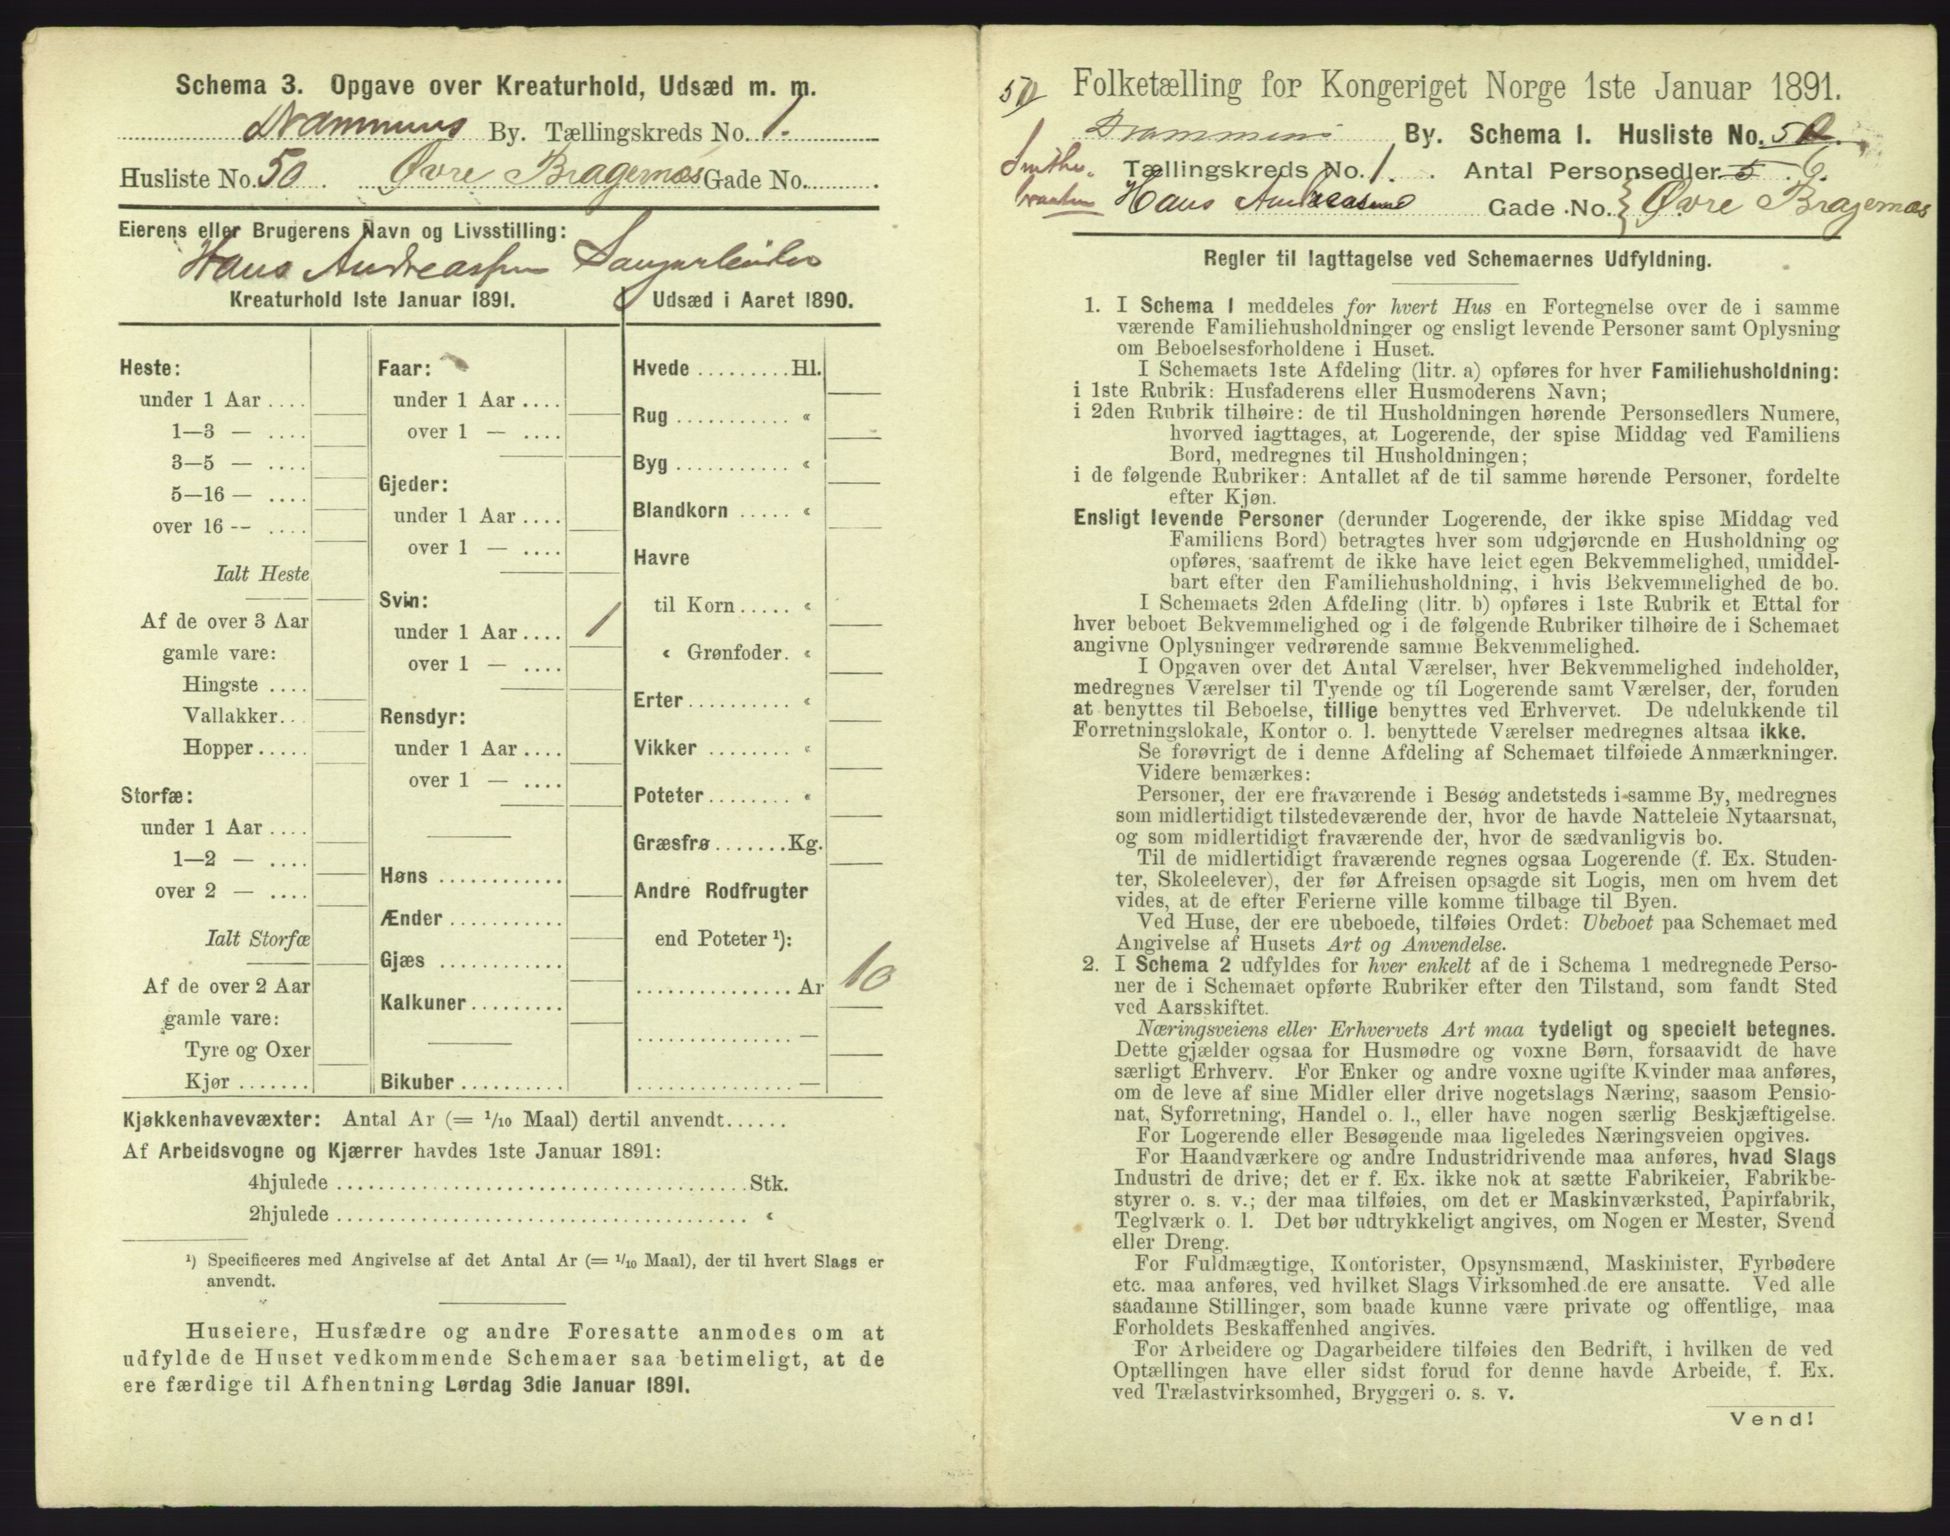 Schema 3. Opgave over Kreaturhold, Udsæd m. m.
Drammens By. Tællingskreds No. 1.
Husliste No. 50. Øvre Bragernæs Gade No.
Eierens eller Brugerens Navn og Livsstilling:
Hans Andreassen
Kreaturhold 1ste Januar 1891.
Heste:
under 1 Aar ....
1—3 — ....
3—5 — ....
5—16 — ....
over 16 -- ....
Ialt Heste
Af de over 3 Aar
gamle vare:
Hingste ....
Vallakker...
Hopper.....
Storfæ:
under 1 Aar ....
1—2 — ....
over 2 — ....
Ialt Storfæ
Af de over 2 Aar
gamle vare:
Tyre og Oxer
Kjør .......
Faar:
under 1 Aar ....
over 1 — ....
Gjeder:
under 1 Aar ....
over 1 — ....
Svin:
under 1 Aar .... 1
over 1 — ....
Rensdyr:
under 1 Aar ....
over 1 — ....
Høns ............
Ænder ...........
Gjæs ............
Kalkuner .........
Bikuber ..........
Udsæd i Aaret 1890.
Hvede ......... Hl.
Rug ........... «
Byg ........... «
Blandkorn ..... «
Havre
til Korn ..... «
« Grønfoder. «
Erter .......... «
Vikker ........ «
Poteter ........ «
Græsfrø ....... Kg.
Andre Rodfrugter
end Poteter ¹):
............... Ar 10
............... —
............... —
Kjøkkenhavevæxter: Antal Ar (= 1/10 Maal) dertil anvendt......
Af Arbeidsvogne og Kjærrer havdes 1ste Januar 1891:
4hjulede ........................................ Stk.
2hjulede ........................................ «
¹) Specificeres med Angivelse af det Antal Ar (= 1/10 Maal), der til hvert Slags er
anvendt.
Huseiere, Husfædre og andre Foresatte anmodes om at
udfylde de Huset vedkommende Schemaer saa betimeligt, at de
ere færdige til Afhentning Lørdag 3die Januar 1891.
50
Folketælling for Kongeriget Norge 1ste Januar 1891.
Drammens By. Schema 1. Husliste No. 50.
Tællingskreds No. 1. Antal Personsedler 5. 6.
Hans Andreasens Gade No. } Øvre Bragernæs
Regler til Iagttagelse ved Schemaernes Udfyldning.
1. I Schema 1 meddeles for hvert Hus en Fortegnelse over de i samme
værende Familiehusholdninger og ensligt levende Personer samt Oplysning
om Beboelsesforholdene i Huset.
I Schemaets 1ste Afdeling (litr. a) opføres for hver Familiehusholdning:
i 1ste Rubrik: Husfaderens eller Husmoderens Navn;
i 2den Rubrik tilhøire: de til Husholdningen hørende Personsedlers Numere,
hvorved iagttages, at Logerende, der spise Middag ved Familiens
Bord, medregnes til Husholdningen;
i de følgende Rubriker: Antallet af de til samme hørende Personer, fordelte
efter Kjøn.
Ensligt levende Personer (derunder Logerende, der ikke spise Middag ved
Familiens Bord) betragtes hver som udgjørende en Husholdning og
opføres, saafremt de ikke have leiet egen Bekvemmelighed, umiddel-
bart efter den Familiehusholdning, i hvis Bekvemmelighed de bo.
I Schemaets 2den Afdeling (litr. b) opføres i 1ste Rubrik et Ettal for
hver beboet Bekvemmelighed og i de følgende Rubriker tilhøire de i Schemaet
angivne Oplysninger vedrørende samme Bekvemmelighed.
I Opgaven over det Antal Værelser, hver Bekvemmelighed indeholder,
medregnes Værelser til Tyende og til Logerende samt Værelser, der, foruden
at benyttes til Beboelse, tillige benyttes ved Erhvervet. De udelukkende til
Forretningslokale, Kontor o. l. benyttede Værelser medregnes altsaa ikke.
Se forøvrigt de i denne Afdeling af Schemaet tilføiede Anmærkninger.
Videre bemærkes:
Personer, der ere fraværende i Besøg andetsteds i samme By, medregnes
som midlertidigt tilstedeværende der, hvor de havde Natteleie Nytaarsnat,
og som midlertidigt fraværende der, hvor de sædvanligvis bo.
Til de midlertidigt fraværende regnes ogsaa Logerende (f. Ex. Studen-
ter, Skoleelever), der før Afreisen opsagde sit Logis, men om hvem det
vides, at de efter Ferierne ville komme tilbage til Byen.
Ved Huse, der ere ubeboede, tilføies Ordet: Ubeboet paa Schemaet med
Angivelse af Husets Art og Anvendelse.
2. I Schema 2 udfyldes for hver enkelt af de i Schema 1 medregnede Perso-
ner de i Schemaet opførte Rubriker efter den Tilstand, som fandt Sted
ved Aarsskiftet.
Næringsveiens eller Erhvervets Art maa tydeligt og specielt betegnes.
Dette gjælder ogsaa for Husmødre og voxne Børn, forsaavidt de have
særligt Erhverv. For Enker og andre voxne ugifte Kvinder maa anføres,
om de leve af sine Midler eller drive nogetslags Næring, saasom Pensio-
nat, Syforretning, Handel o. l., eller have nogen særlig Beskjæftigelse.
For Logerende eller Besøgende maa ligeledes Næringsveien opgives.
For Haandværkere og andre Industridrivende maa anføres, hvad Slags
Industri de drive; det er f. Ex. ikke nok at sætte Fabrikeier, Fabrikbe-
styrer o. s. v.; der maa tilføies, om det er Maskinværksted, Papirfabrik,
Teglværk o. l. Det bør udtrykkeligt angives, om Nogen er Mester, Svend
eller Dreng.
For Fuldmægtige, Kontorister, Opsynsmænd, Maskinister, Fyrbødere
etc. maa anføres, ved hvilket Slags Virksomhed de ere ansatte. Ved alle
saadanne Stillinger, som baade kunne være private og offentlige, maa
Forholdets Beskaffenhed angives.
For Arbeidere og Dagarbeidere tilføies den Bedrift, i hvilken de ved
Optællingen have eller sidst forud for denne havde Arbeide, f. Ex.
ved Trælastvirksomhed, Bryggeri o. s. v.
Vend!